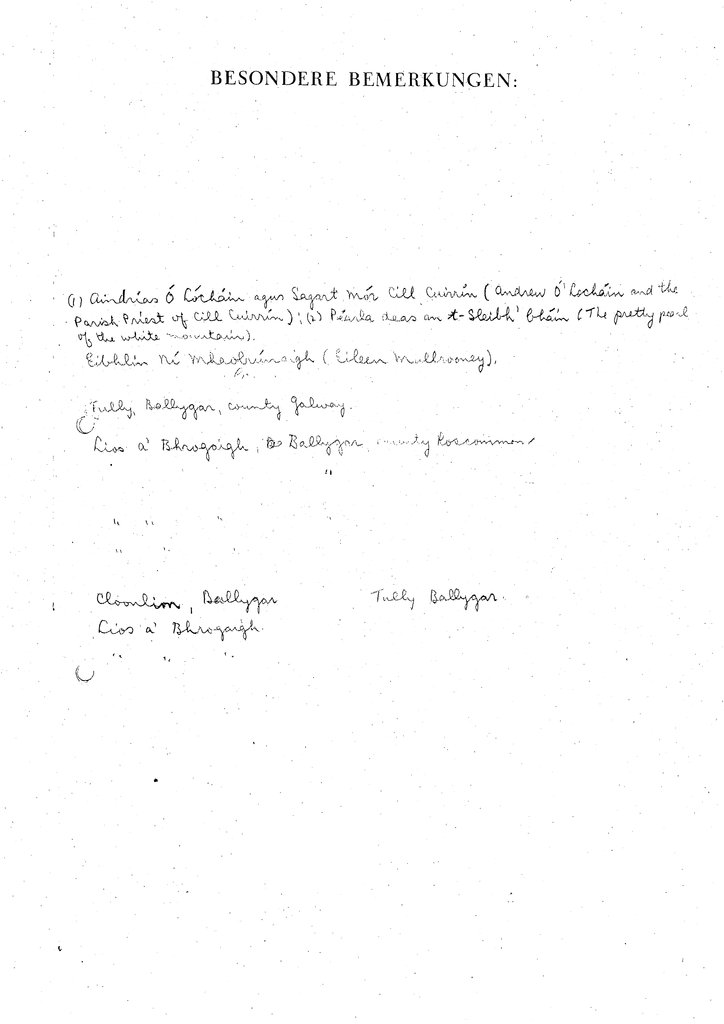 BESONDERE BEMERKUNGEN:
(1) Aindrías Ó Lócháin agus Sagart Mór Cill Cuirrín (Andrew O'Locháin and the
Parish Priest of Cill Cuirrín); (2) Péarla deas an t-Sleibh' bháin (The pretty pearl
of the white mountain).
Eibhlín Ní Mhaolrúnaigh (Eileen Mullrooney),
Tully, Ballygar, county Galway.
Lios a' Bhrogaigh, Ballygar, county Roscommon
"
" " "
" " "
Cloonlion, Ballygar Tully Ballygar.
Lios a' Bhrogaigh.
" " "